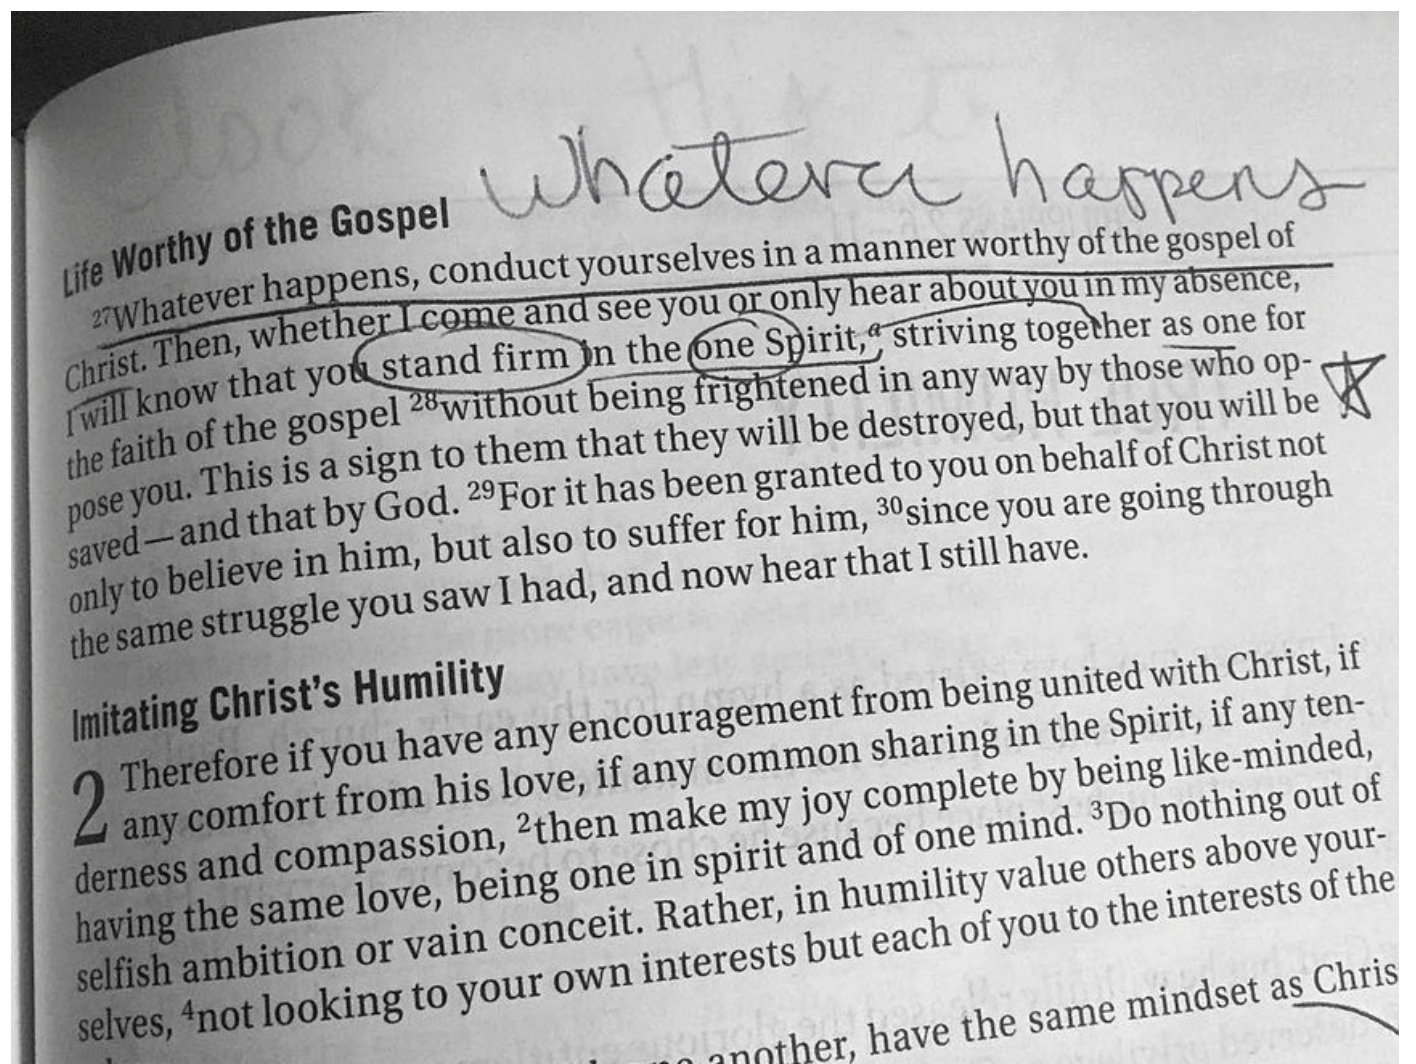 Whatever happens
Life Worthy of the Gospel
27Whatever happens, conduct yourselves in a manner worthy of the gospel of
Christ. Then, whether I come and see you or only hear about you in my absence,
I will know that you stand firm in the one Spirit,a striving together as one for
the faith of the gospel 28without being frightened in any way by those who op-
pose you. This is a sign to them that they will be destroyed, but that you will be
saved—and that by God. 29For it has been granted to you on behalf of Christ not
only to believe in him, but also to suffer for him, 30since you are going through
the same struggle you saw I had, and now hear that I still have.
Imitating Christ's Humility
2 Therefore if you have any encouragement from being united with Christ, if
any comfort from his love, if any common sharing in the Spirit, if any ten-
derness and compassion, 2then make my joy complete by being like-minded,
having the same love, being one in spirit and of one mind. 3Do nothing out of
selfish ambition or vain conceit. Rather, in humility value others above your-
selves, 4not looking to your own interests but each of you to the interests of the
another, have the same mindset as Chris